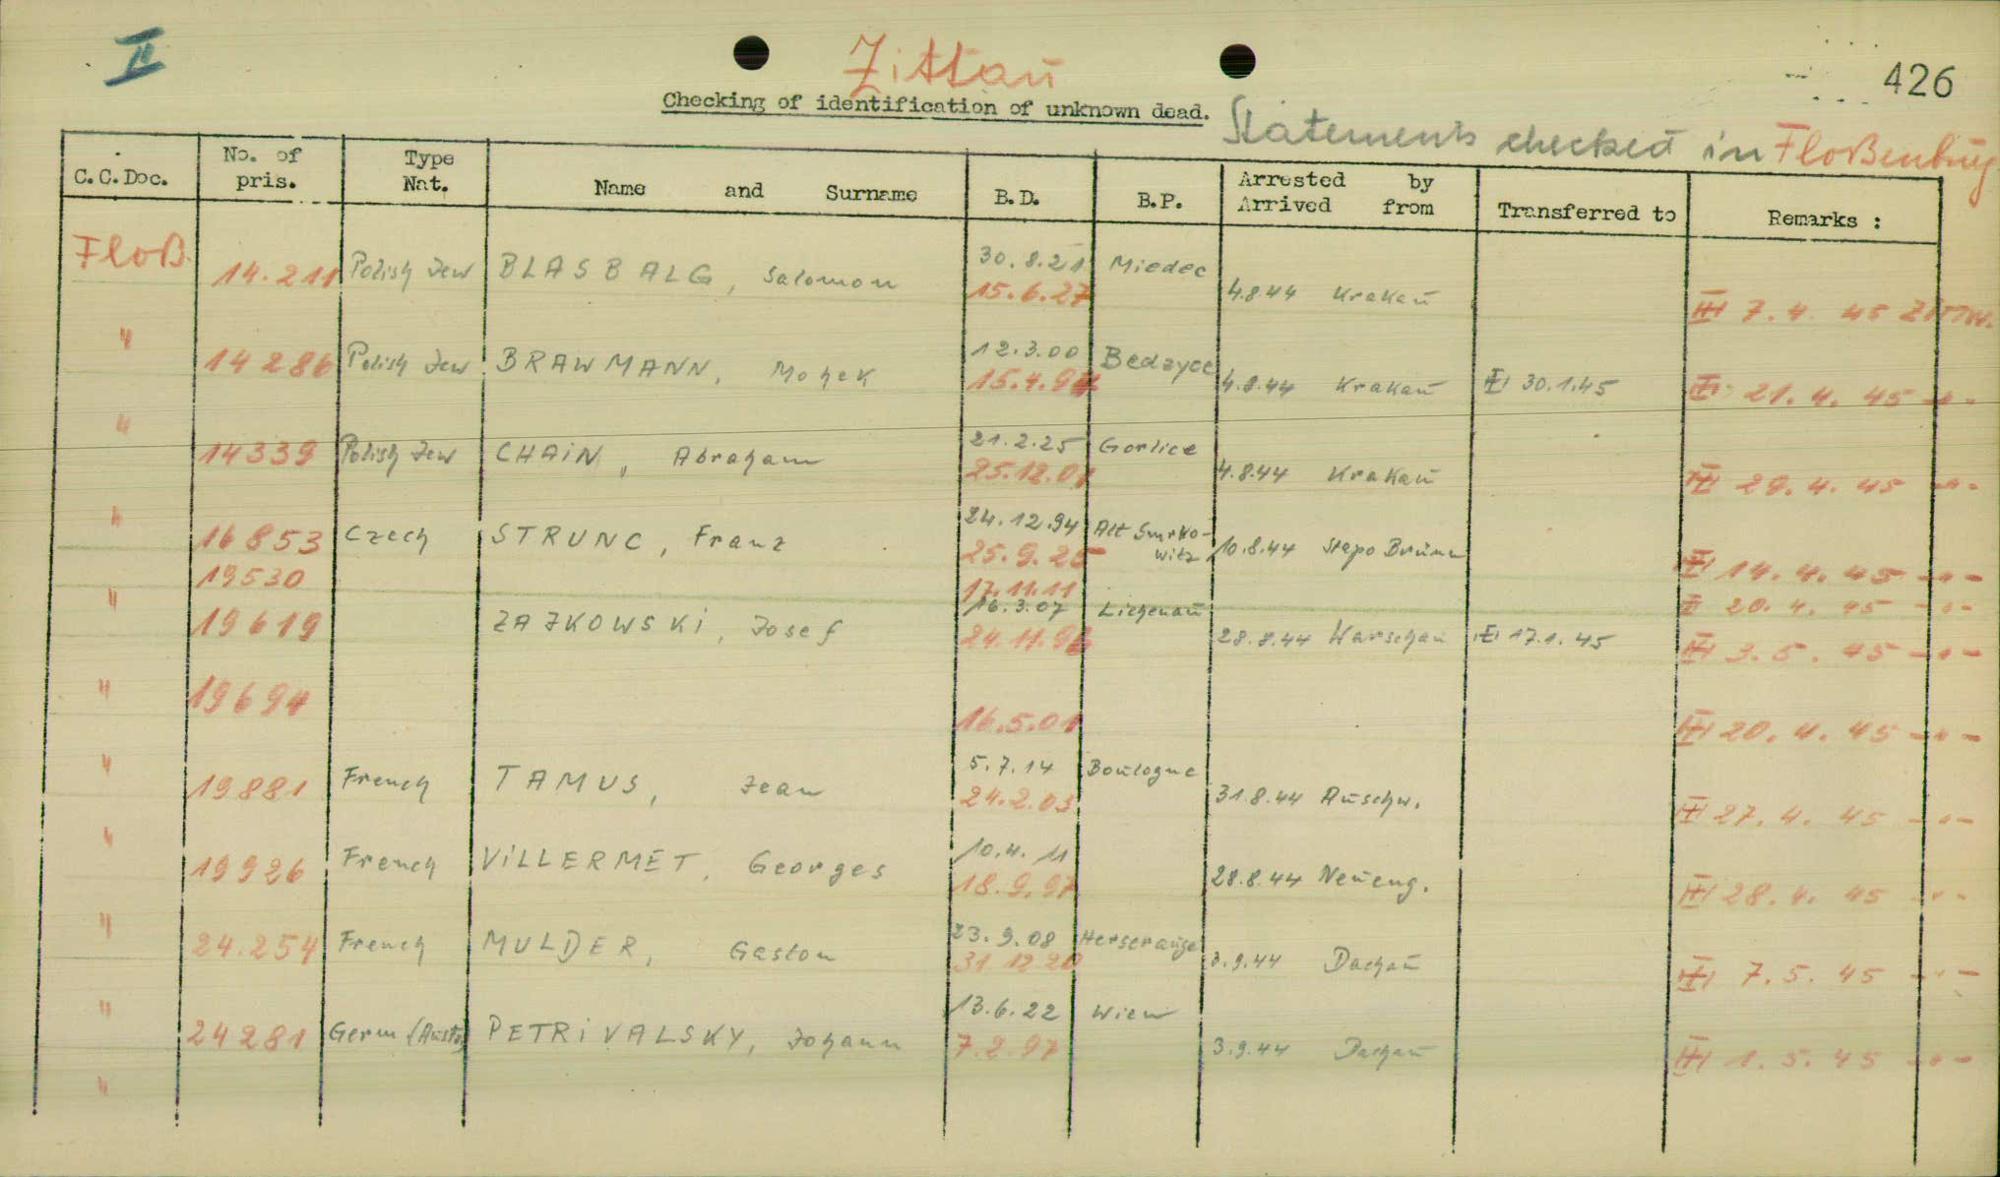 II
Zittau
426
Checking of identification of unknown dead.
Statements checked in Floßenbürg
C.C.Doc. No. of pris. Type Nat. Name and Surname B.D. B.P. Arrested by Arrived from Transferred to Remarks :
Floß. 14.211 Polish Jew BLASBALG, Salomon 30.8.21 Miedec
15.6.27 4.8.44 Krakau 7.4.45
" 14286 Polish Jew BRAWMANN, Mohek 12.3.00 Bedzyce
15.4.94 4.8.44 Krakau 30.1.45 21.4.45 -"-
" 14339 Polish Jew CHAiN, Abraham 21.2.25 Gorlice
25.12.01 4.8.44 Krakau 29.4.45 -"-
" 16853 Czech STRUNC, Franz 24.12.94 Alt Smrkowitz
25.9.25 10.8.44 Stapo Brünn 14.4.45 -"-
19530 17.11.11 20.4.45 -"-
" 19619 ZAJKOWSKi, Josef 16.3.07 Lichenau
24.11.96 28.8.44 Warschau 17.1.45 3.5.45 -"-
" 19694 16.5.01 20.4.45 -"-
" 19881 French TAMUS, Jean 5.7.14 Boulogne
24.2.03 31.8.44 Auschw. 27.4.45 -"-
" 19926 French ViLLERMET, Georges 10.4.11
18.9.97 28.8.44 Neueng. 28.4.45 -"-
" 24.254 French MULDER, Gaston 23.9.08 Herserange
31 12 20 3.9.44 Dachau 7.5.45 -"-
" 24281 Germ (Austr) PETRiVALSKY, Johann 13.6.22 Wien
7.2.97 3.9.44 Dachau 1.5.45 -"-
"